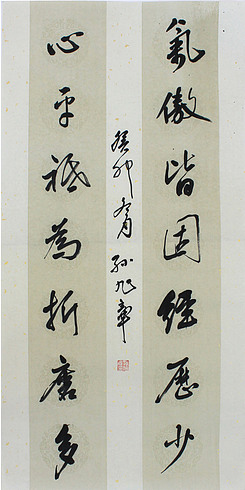 氣傲皆因經歷少
心平祗為折磨多
癸卯冬月 孙旭章